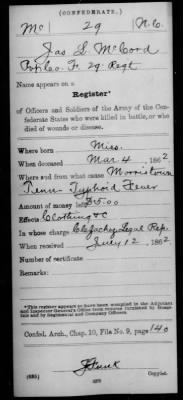 (CONFEDERATE.)
Mc 29 N.C.
Jas L. McCord
Pvt Co. F, 29 Regt
Name appears on a
Register*
of Officers and Soldiers of the Army of the Confederate States who were killed in battle, or who died of wounds or disease.
Where born Miss.
When deceased Mar 4, 1862.
Where and from what cause Morristown
Tenn Typhoid Fever
Amount of money left
Effects Clothing &c
In whose charge Legal Rep.
When received July 12, 1862
Number of certificate
Remarks:
*This register appears to have been compiled in the Adjutant and Inspector General's Office from returns furnished by Hospitals and by Regimental and Company Officers.
Confed. Arch., Chap. 10, File No. 9, page 140
Copyist.